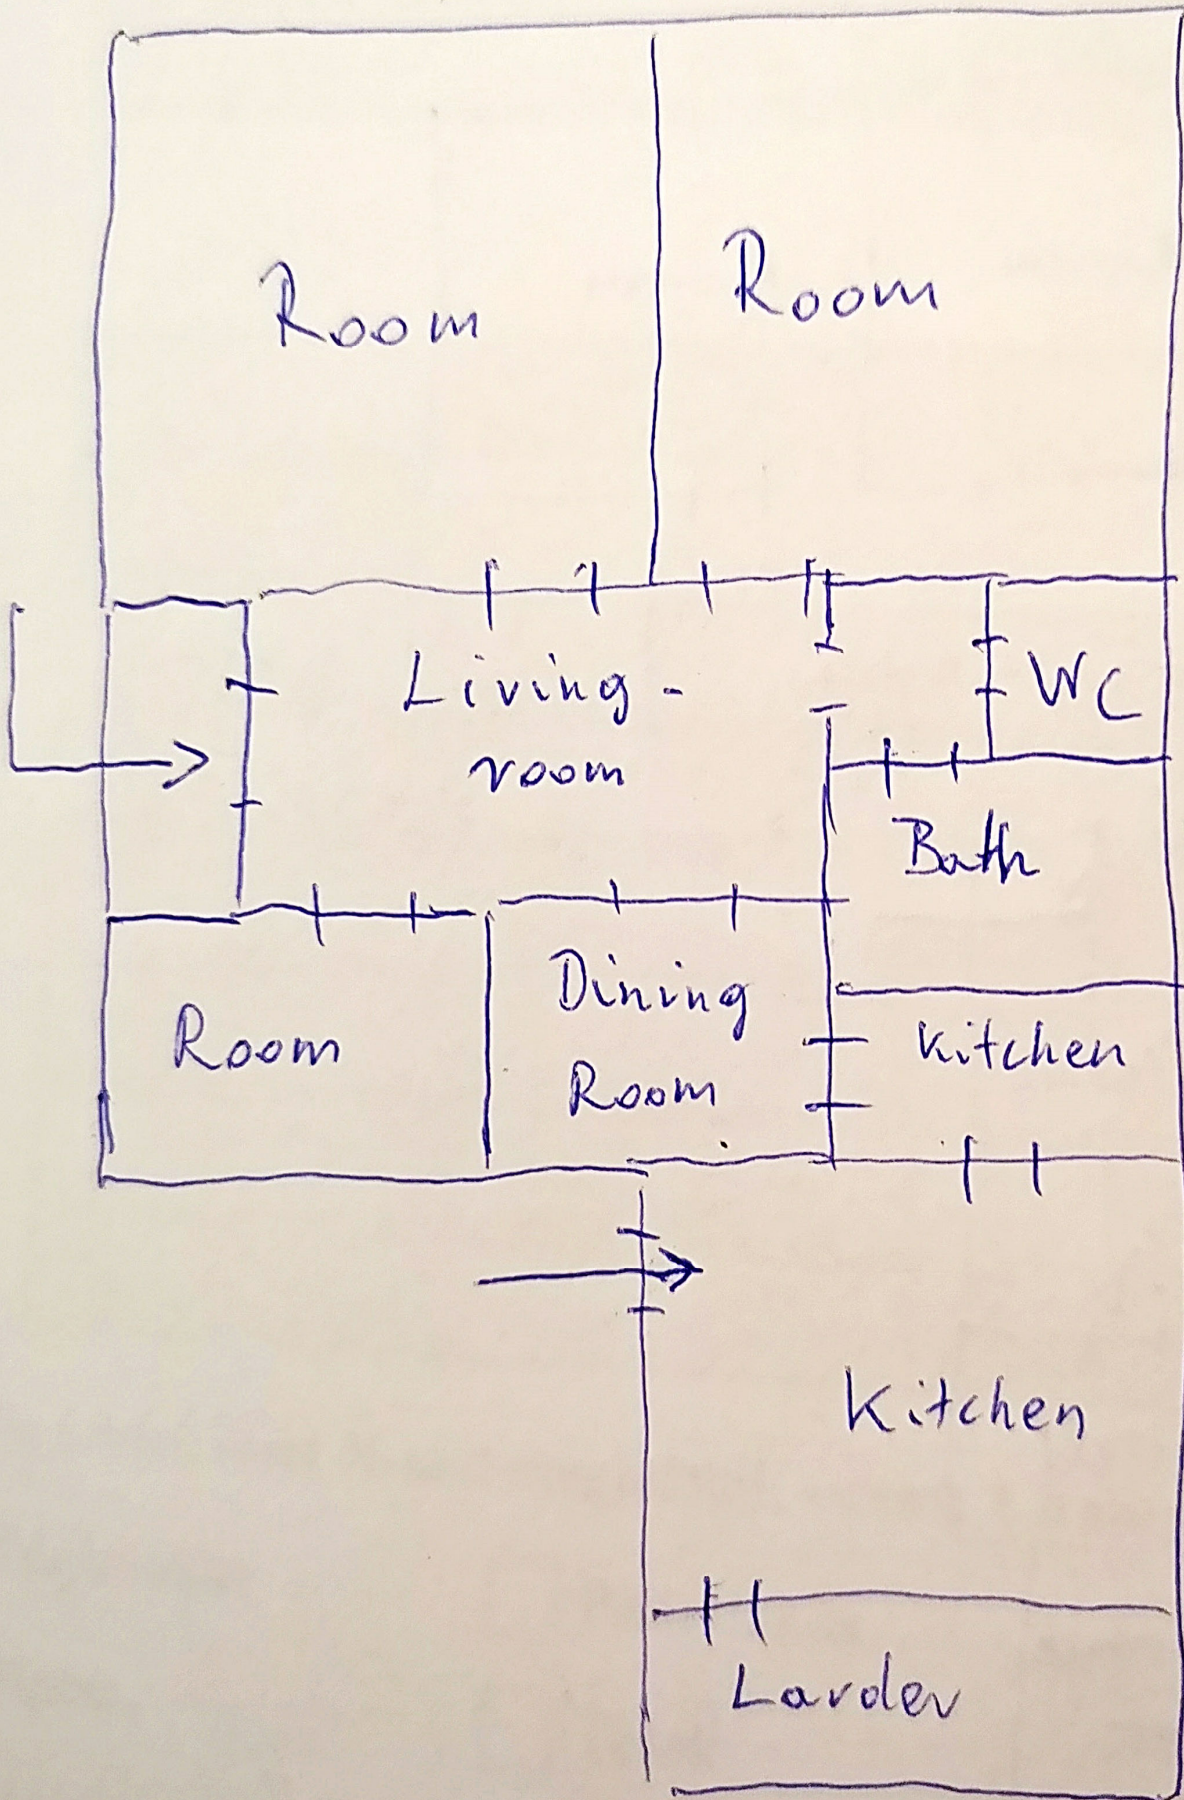 Room
Room
Living-
room
WC
Bath
Dining
Room
Kitchen
Room
Kitchen
Larder